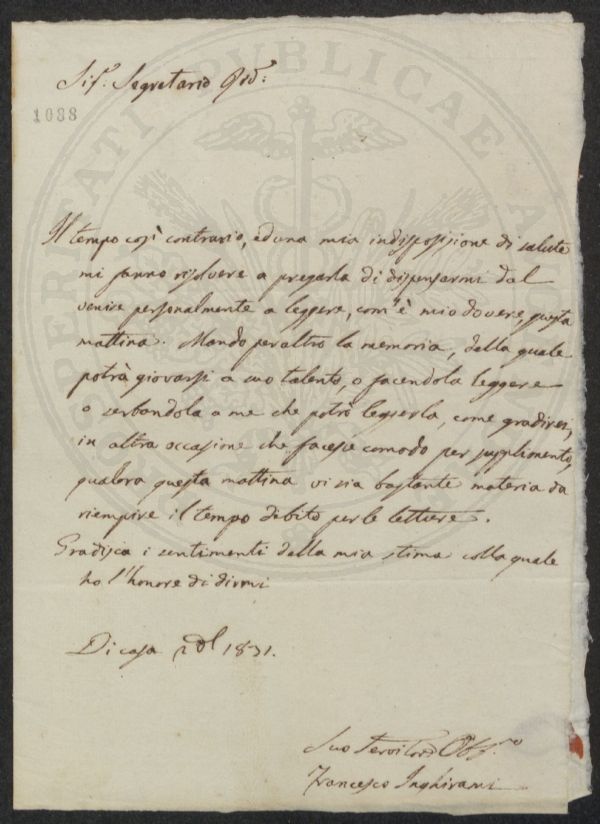 Sig.r Segretario Pro:
1088
Il tempo così contrario, ed una mia indisposizione di salute
mi fanno risolvere a pregarla di dispensarmi dal
venire personalmente a leggere, com'è mio dovere, questa
mattina. Mando peraltro la memoria, della quale
potrà giovarsi a suo talento, o facendola leggere
o serbandola a me che potrò leggerla, come gradirei,
in altra occasione che facesse comodo per supplimento,
qualora questa mattina vi sia bastante materia da
riempire il tempo debito per le letture.
Gradisca i sentimenti della mia stima colla quale
ho l'honore di dirmi
Di casa 1831.
Suo Servitore Obb.mo
Francesco Inghirami